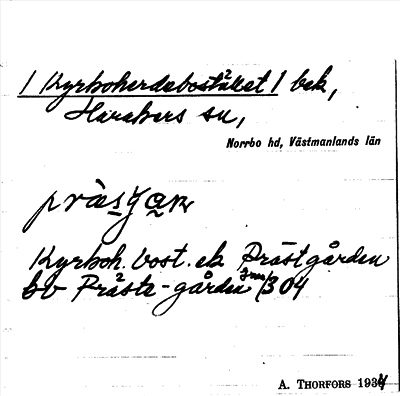 / Kyrkoherdebostället / bek,
Harakers sn,
Norrbo hd, Västmanlands län
Kyrkoh. bost. ek Prästgården
bv Präste-gården 1304
A. Thorfors 1934